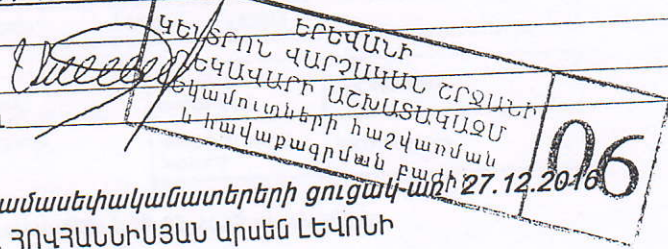 ԵՐԵՎԱՆԻ
ԿԵՆՏՐՈՆ ՎԱՐՉԱԿԱՆ ՇՐՋԱՆԻ
ՂԵԿԱՎԱՐԻ ԱՇԽԱՏԱԿԱԶՄ
եկամուտների հաշվառման
և հավաքագրման բաժին
06
ամասեփականատերերի ցուցակ-առ 27.12.2016
ՀՈՎՀԱՆՆԻՍՅԱՆ Արսեն ԼԵՎՈՆԻ